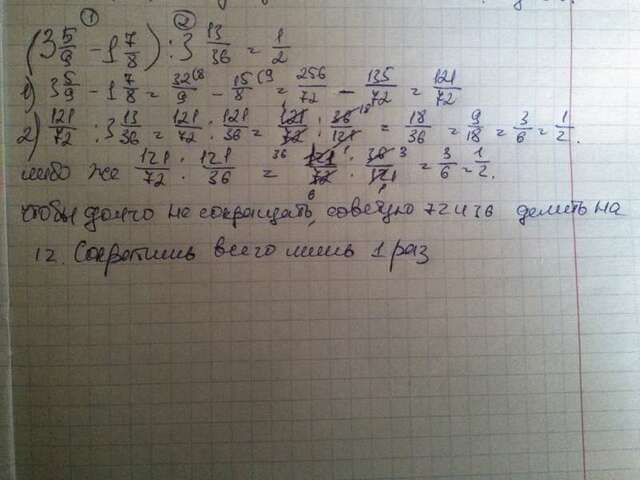 ① ②
(3 5/9 - 1 7/8) : 3 13/36 = 1/2
1) 3 5/9 - 1 7/8 = 32/9 (8 - 15/8 (9 = 256/72 - 135/72 = 121/72
2) 121/72 : 3 13/36 = 121/72 : 121/36 = 121/72 : 36/121 = 18/36 = 9/18 = 3/6 = 1/2.
либо же 121/72 : 121/36 = 121/72 : 36/121 = 3/6 = 1/2.
чтобы долго не сокращать, советую 72 и 36 делить на
12. Сократишь всего лишь 1 раз